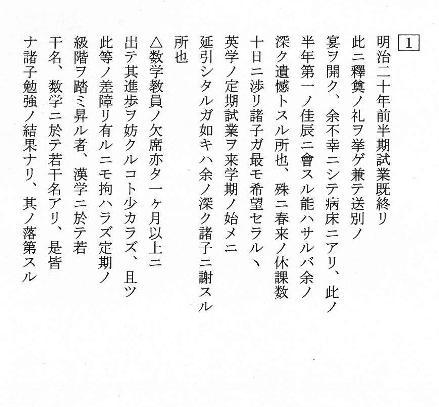 1
明治二十年前半期試業既終リ
此ニ釋奠ノ礼ヲ挙ゲ兼テ送別ノ
宴ヲ開ク、余不幸ニシテ病床ニアリ、此ノ
半年第一ノ佳辰ニ會スル能ハサルバ余ノ
深ク遺憾トスル所也、殊ニ春来ノ休課数
十日ニ渉リ諸子ガ最モ希望セラルヽ
英学ノ定期試業ヲ来学期ノ始メニ
延引シタルガ如キハ余ノ深ク諸子ニ謝スル
所也
△数学教員ノ欠席亦タ一ヶ月以上ニ
出テ其進歩ヲ妨クルコト少カラズ、且ツ
此等ノ差障リ有ルニモ拘ハラズ定期ノ
級階ヲ踏ミ昇ル者、漢学ニ於テ若
干名、数学ニ於テ若干名アリ、是皆
ナ諸子勉強ノ結果ナリ、其ノ落第スル